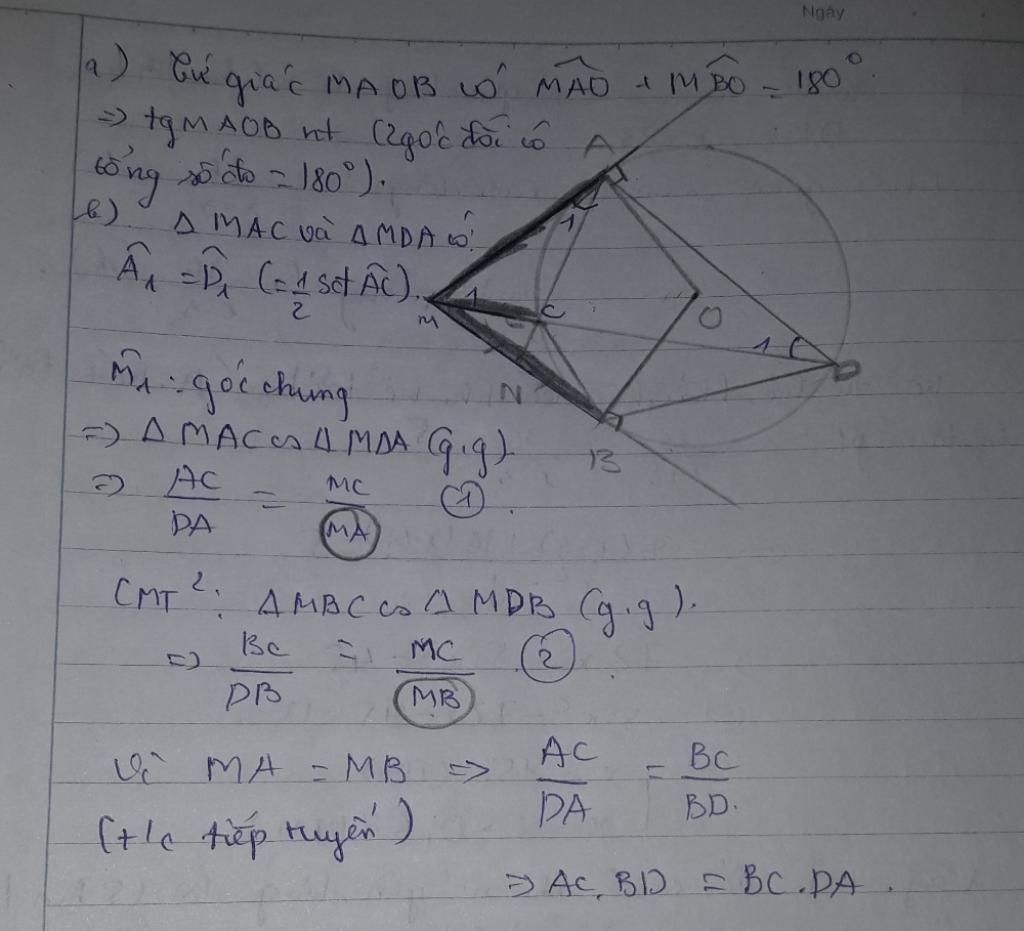 Ngày
a) Tứ giác MAOB có M̂AO + M̂BO = 180°.
=> tg MAOB nt (2 góc đối có
tổng số đo = 180°).
b) Δ MAC và Δ MDA có:
Â₁ = D̂₁ (= 1/2 sđ AC).
M̂₁ : góc chung
=> Δ MAC ∽ Δ MDA (g.g)
=> AC/DA = MC/MA (1).
CMT²: Δ MBC ∽ Δ MDB (g.g).
=> BC/DB = MC/MB (2)
Vì MA = MB => AC/DA = BC/BD.
(t/c tiếp tuyến)
=> AC.BD = BC.DA.
A
1
M
1
C
O
1
D
N
B